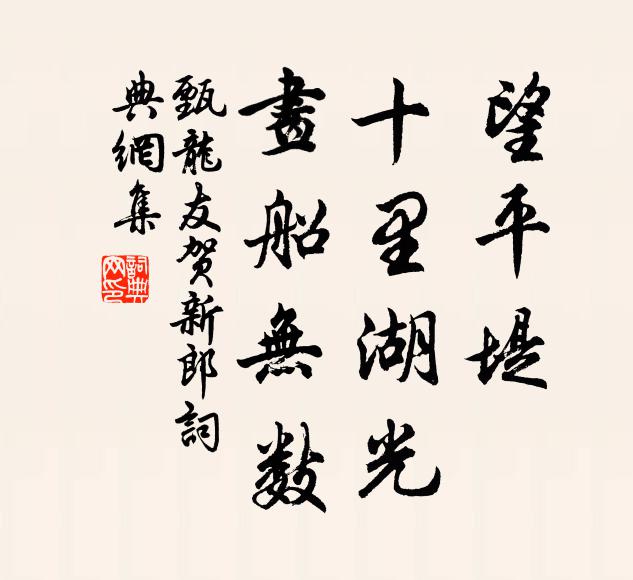 望平堤
十里湖光
畫船無數
甄龍友賀新郎詞
典網集
詞典網印